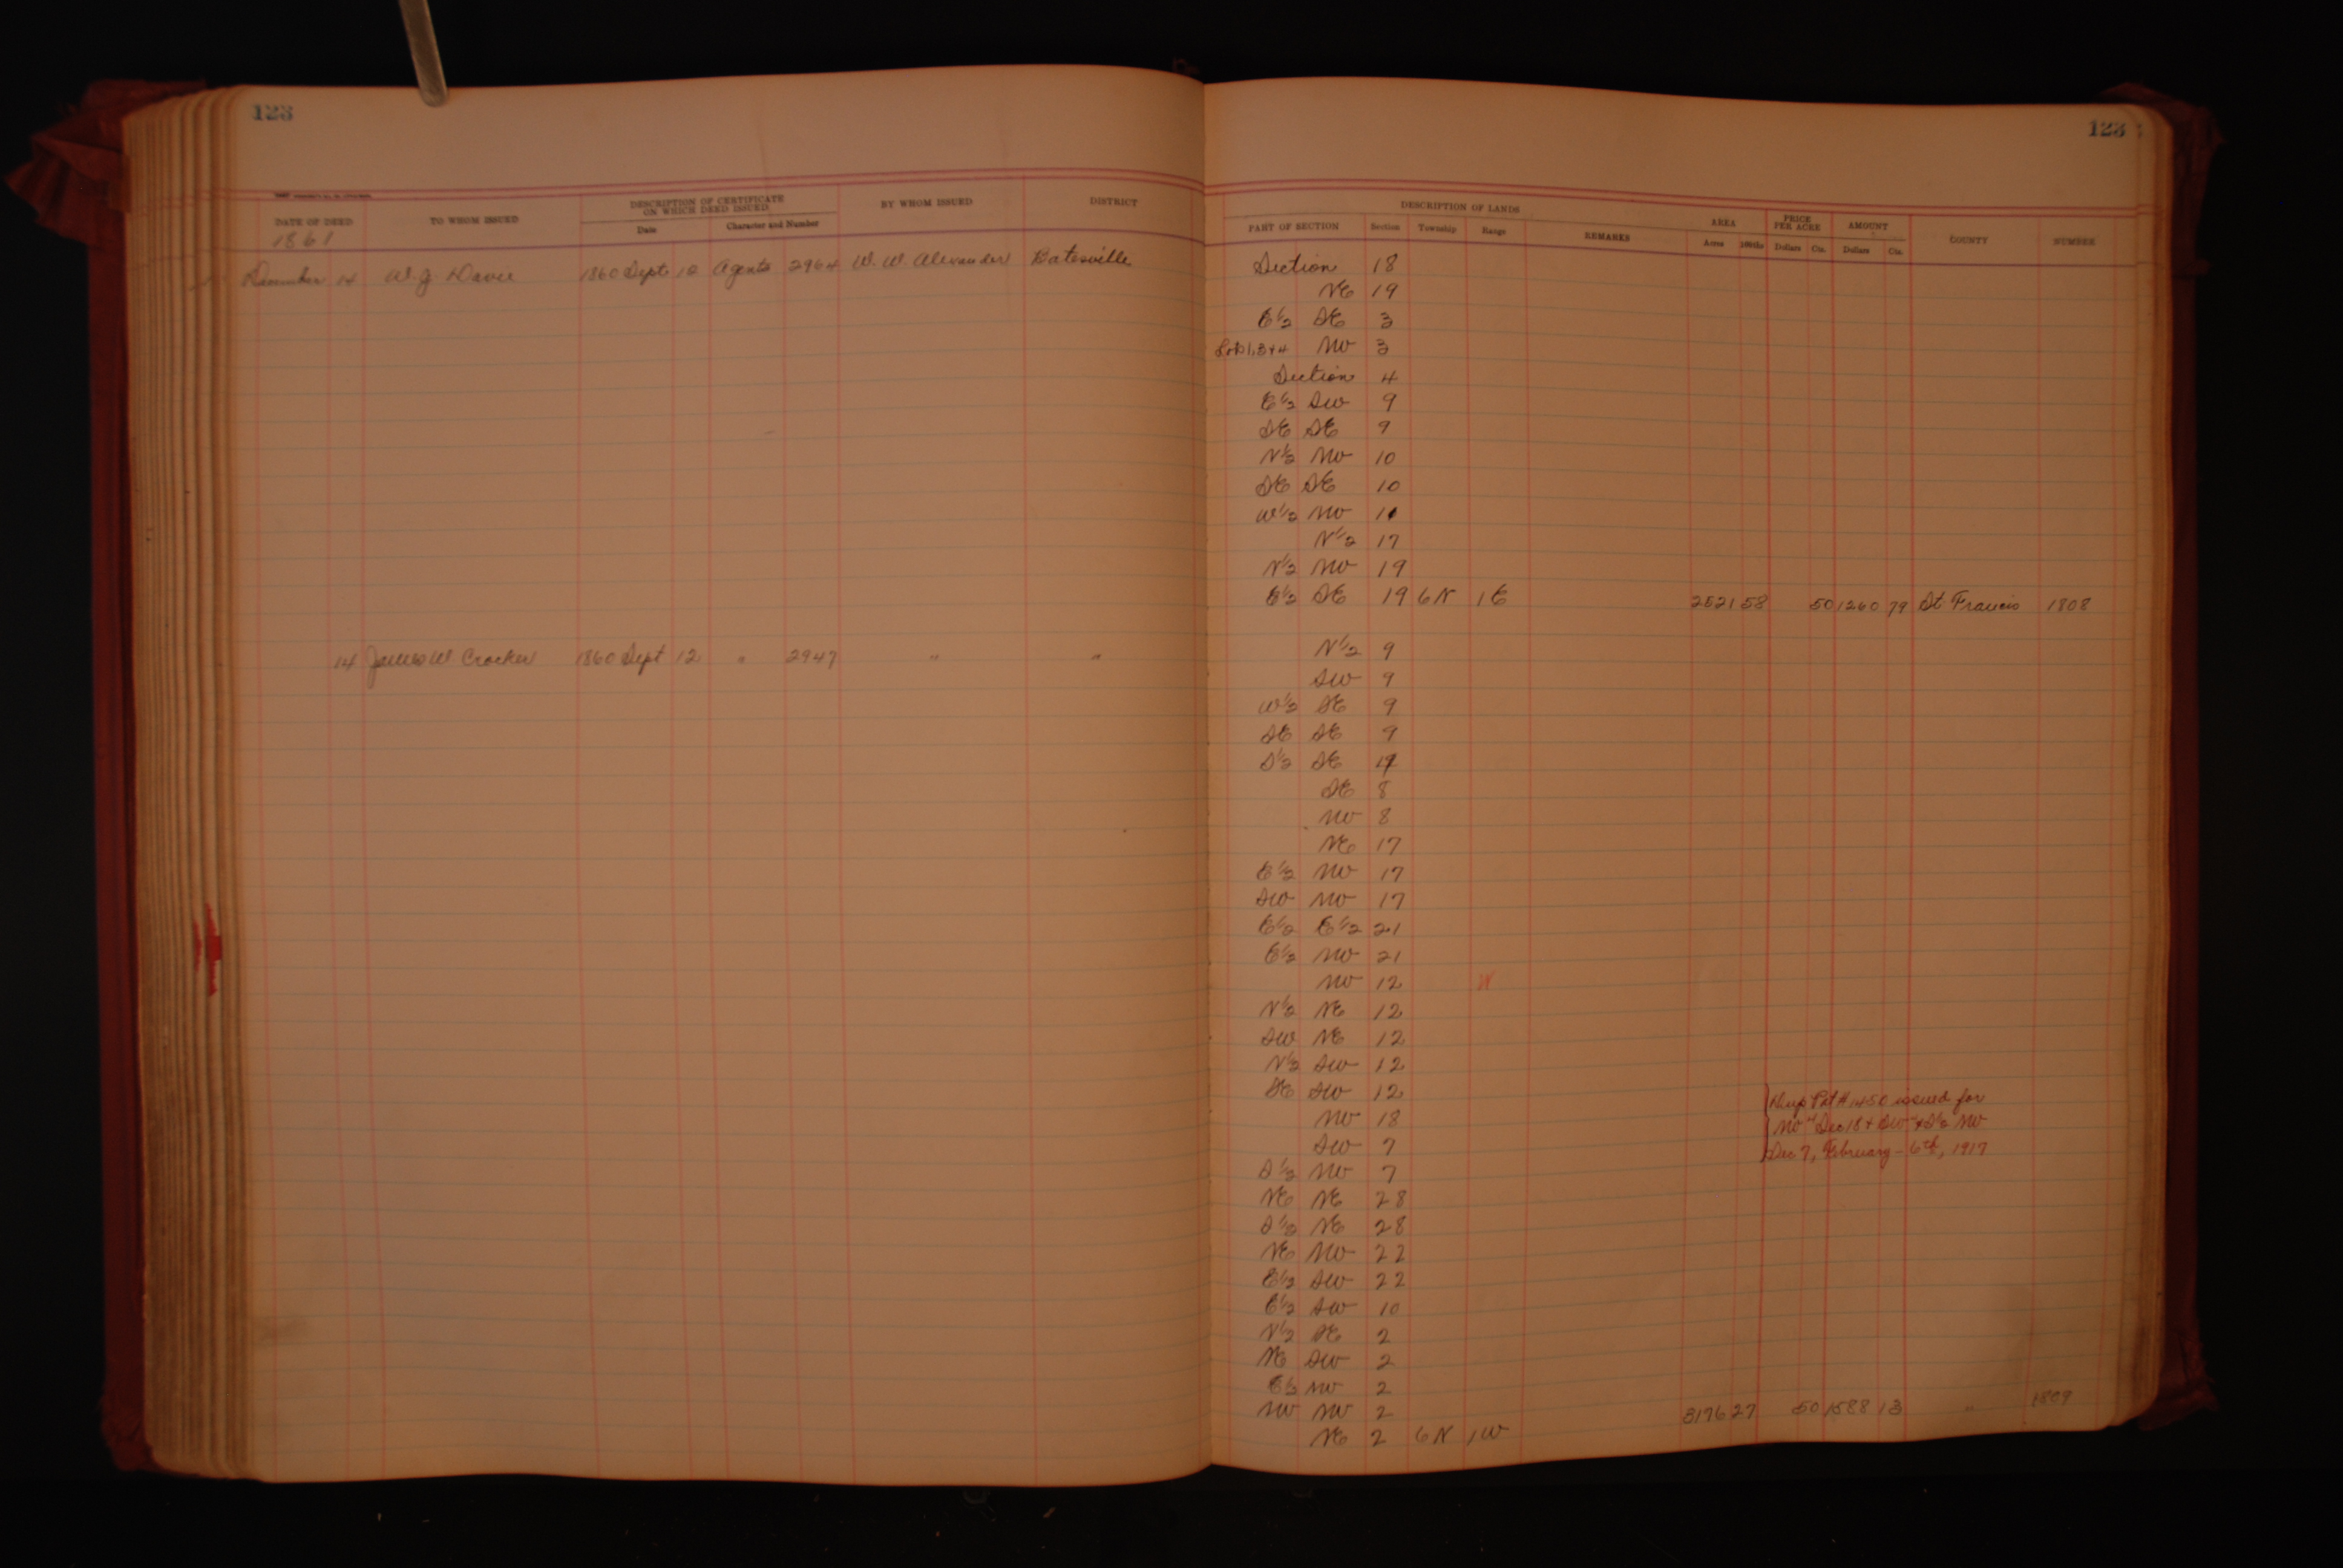 123
DATE OF DEED TO WHOM ISSUED DESCRIPTION OF CERTIFICATE ON WHICH DEED ISSUED BY WHOM ISSUED DISTRICT
Date Character and Number
1861
December 14 W J Davie 1860 Sept 12 Agents 2964 W. W. Alexander Batesville
14 James W Crocker 1860 Sept 12 " 2947 " "
123
DESCRIPTION OF LANDS AREA PRICE PER ACRE AMOUNT
PART OF SECTION Section Township Range REMARKS Acres 100ths Dollars Cts. Dollars Cts. COUNTY NUMBER
Section 18
NE 19
E½ SE 3
Lots 1, 3 + 4 NW 3
Section 4
E½ SW 9
SE SE 9
N½ NW 10
SE SE 10
W½ NW
N½ 17
N½ NW 19
E½ SE 19 6N 1E 2521 58 50 1260 79 St Francis 1808
N½ 9
SW 9
W½ SE 9
SE SE 9
S½ SE
SE 8
NW 8
NE 17
E½ NW 17
SW NW 17
E½ E½ 21
E½ NW 21
NW 12 W
N½ NE 12
SW NE 12
N½ SW 12
SE SW 12
NW 18
SW 7
S½ NW 7
NE NE 28
S½ NE 28
NE NW 22
E½ SW 22
E½ SW 10
N½ SE 2
NE SW 2
E½ NW 2
NW NW 2 3176 27 50 1588 13 " 1809
NE 2 6N 1W
Dup Pat # 1450 issued for
NW Sec 18 + SW + S½ NW
Sec 7, February - 6th, 1917